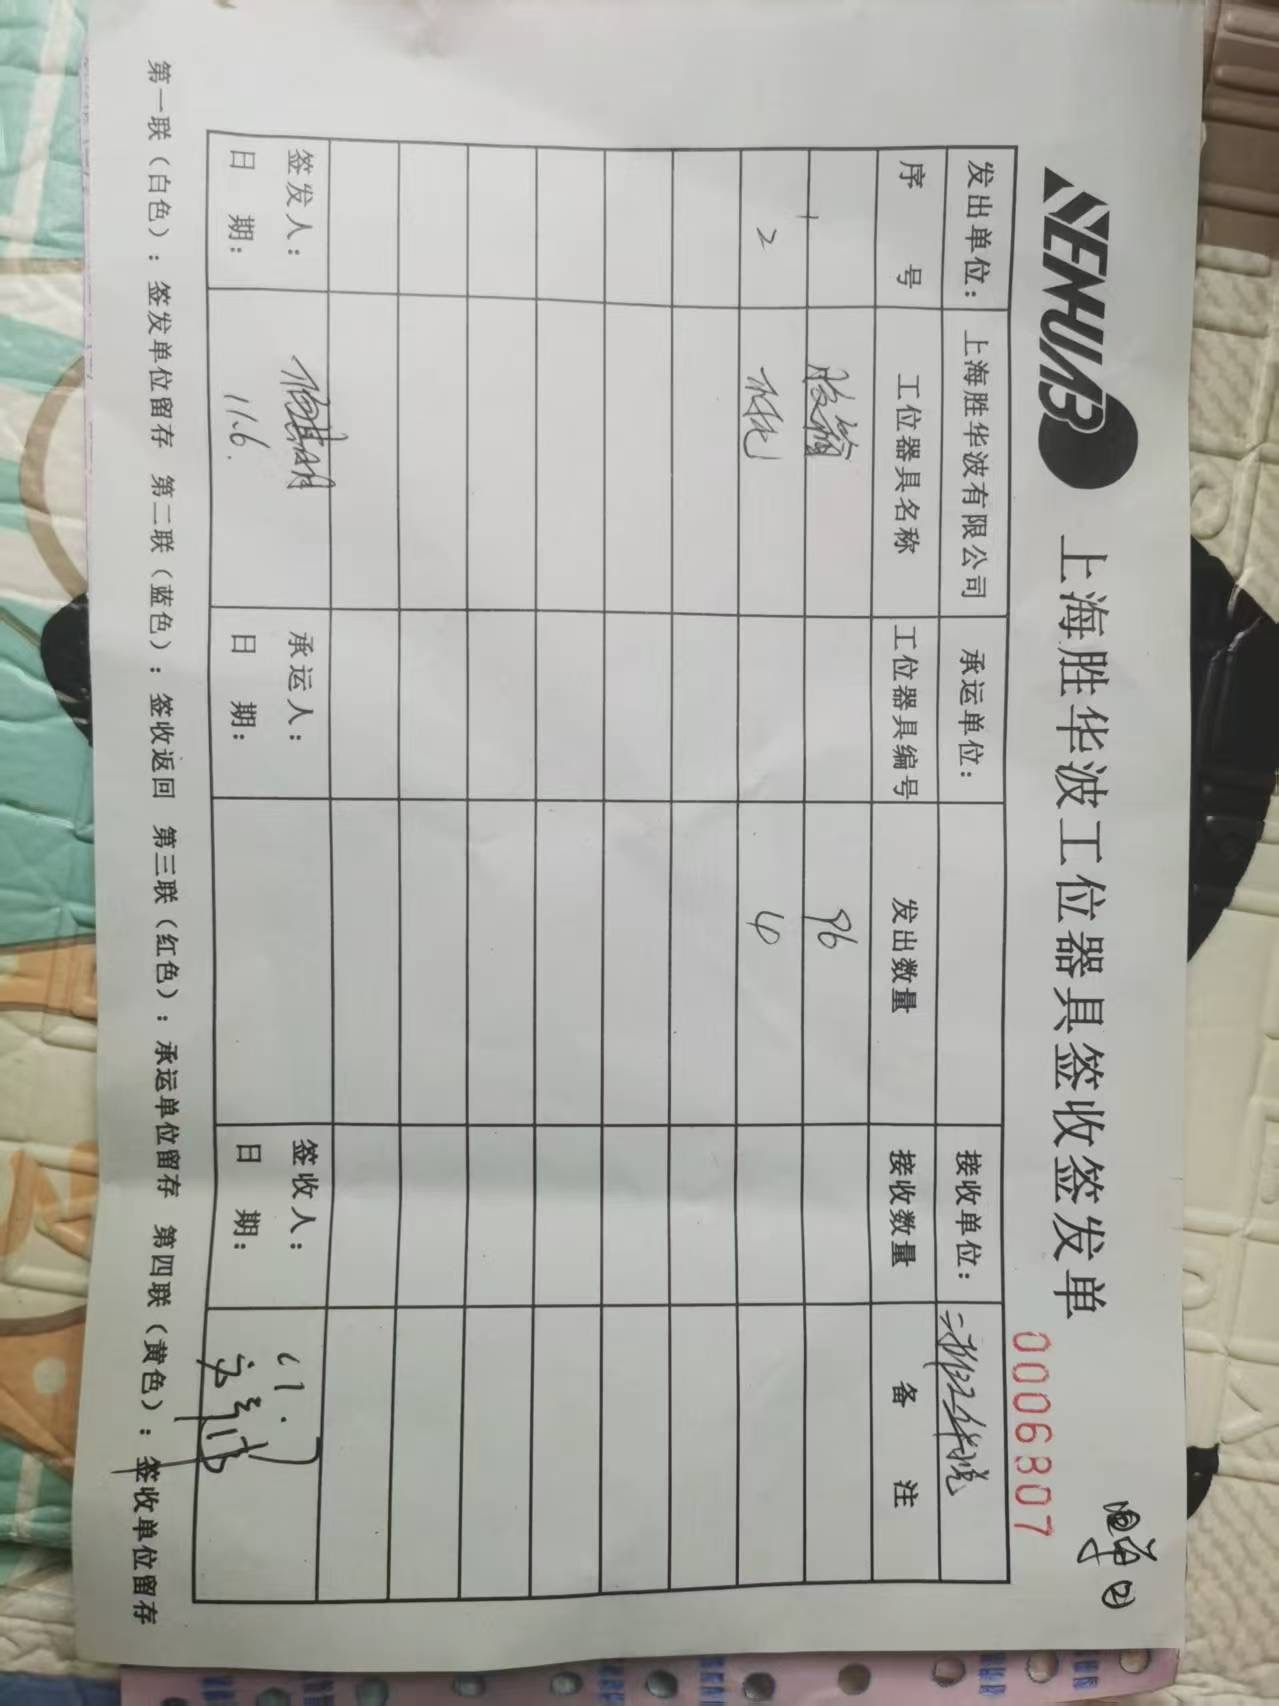 SENHUAB
上海胜华波工位器具签收签发单
0006807
发出单位： 上海胜华波有限公司 承运单位： 接收单位：
序号 工位器具名称 工位器具编号 发出数量 接收数量 备注
1 胶箱 96
2 4
签发人： 承运人： 签收人：
日期： 11.6. 日期： 日期：
第一联（白色）：签发单位留存 第二联（蓝色）：签收返回 第三联（红色）：承运单位留存 第四联（黄色）：签收单位留存